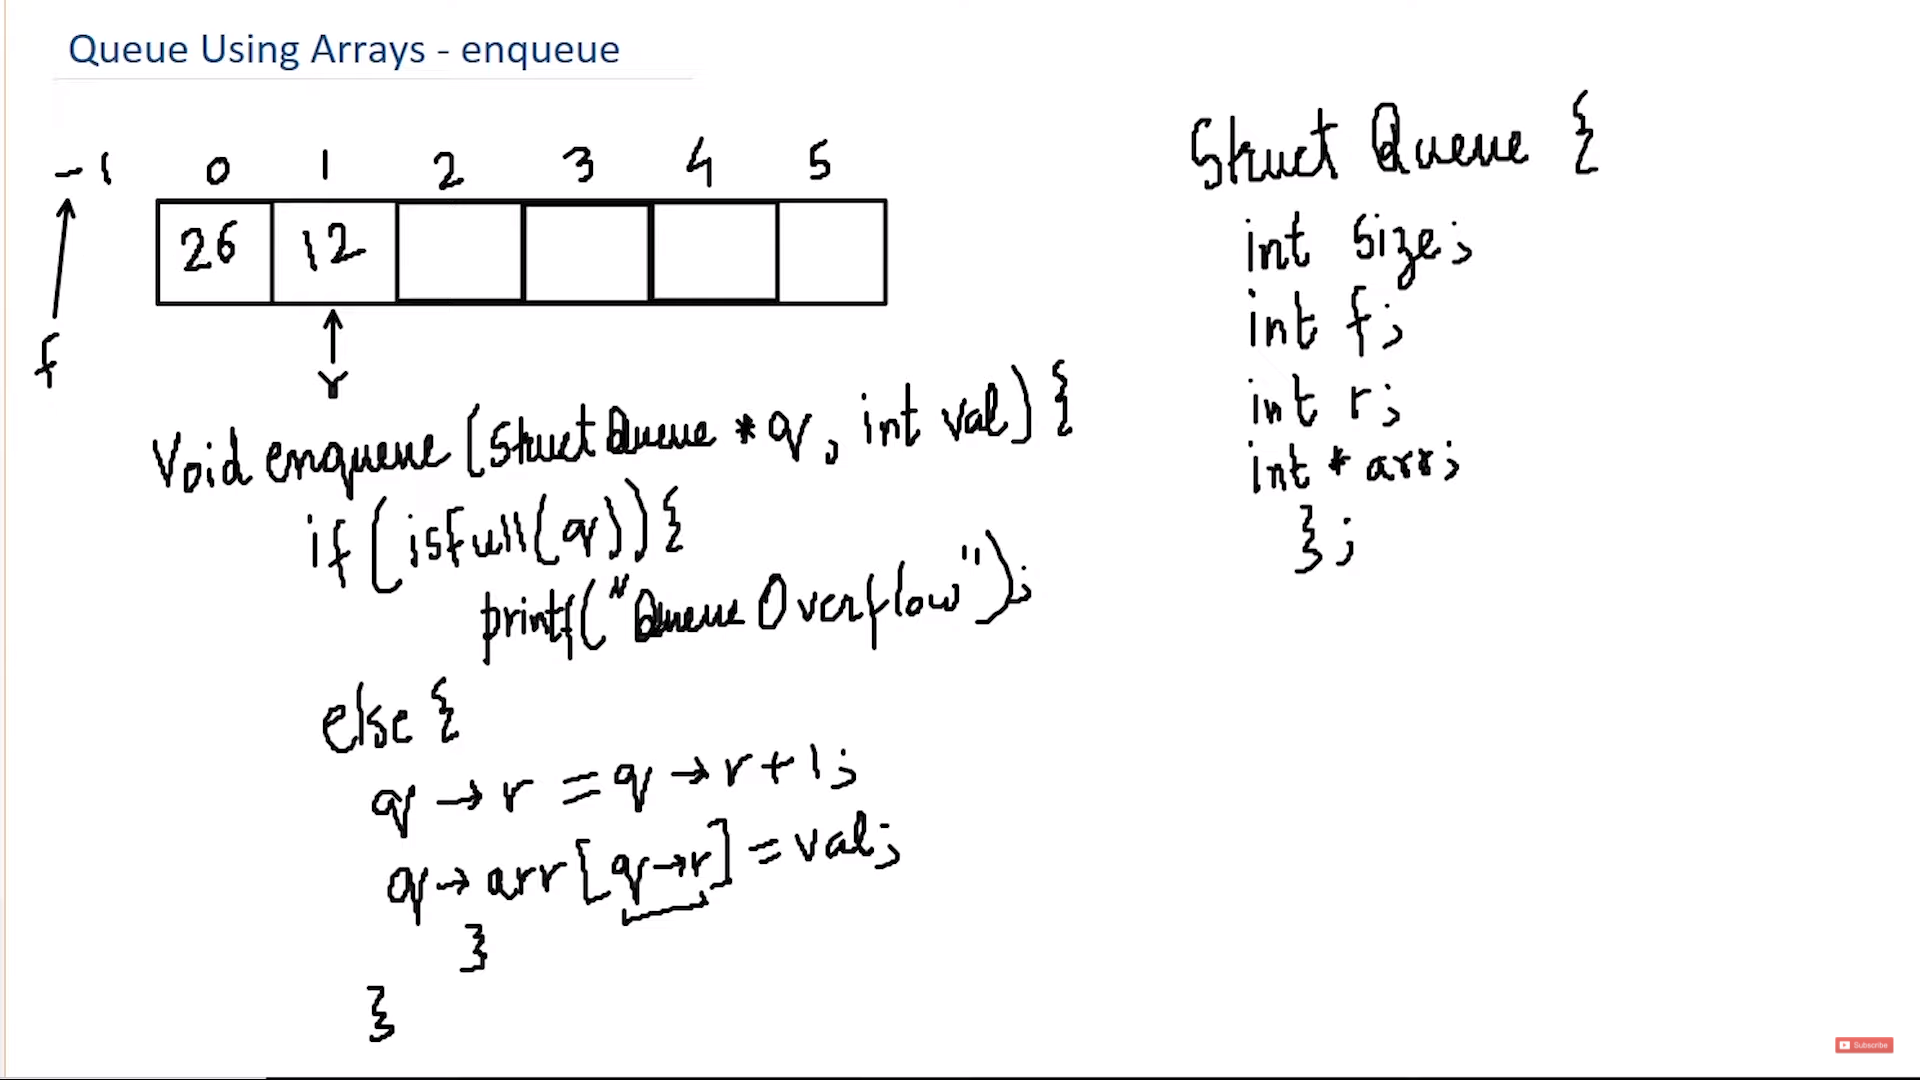 Queue Using Arrays - enqueue
-1 0 1 2 3 4 5
26 12
f
r
Void enqueue (Struct Queue * q, int val) {
if (isfull(q)) {
printf("Queue Overflow");
else {
q → r = q → r + 1;
q → arr [q → r] = val;
}
}
Struct Queue {
int size;
int f;
int r;
int * arr;
};
Subscribe